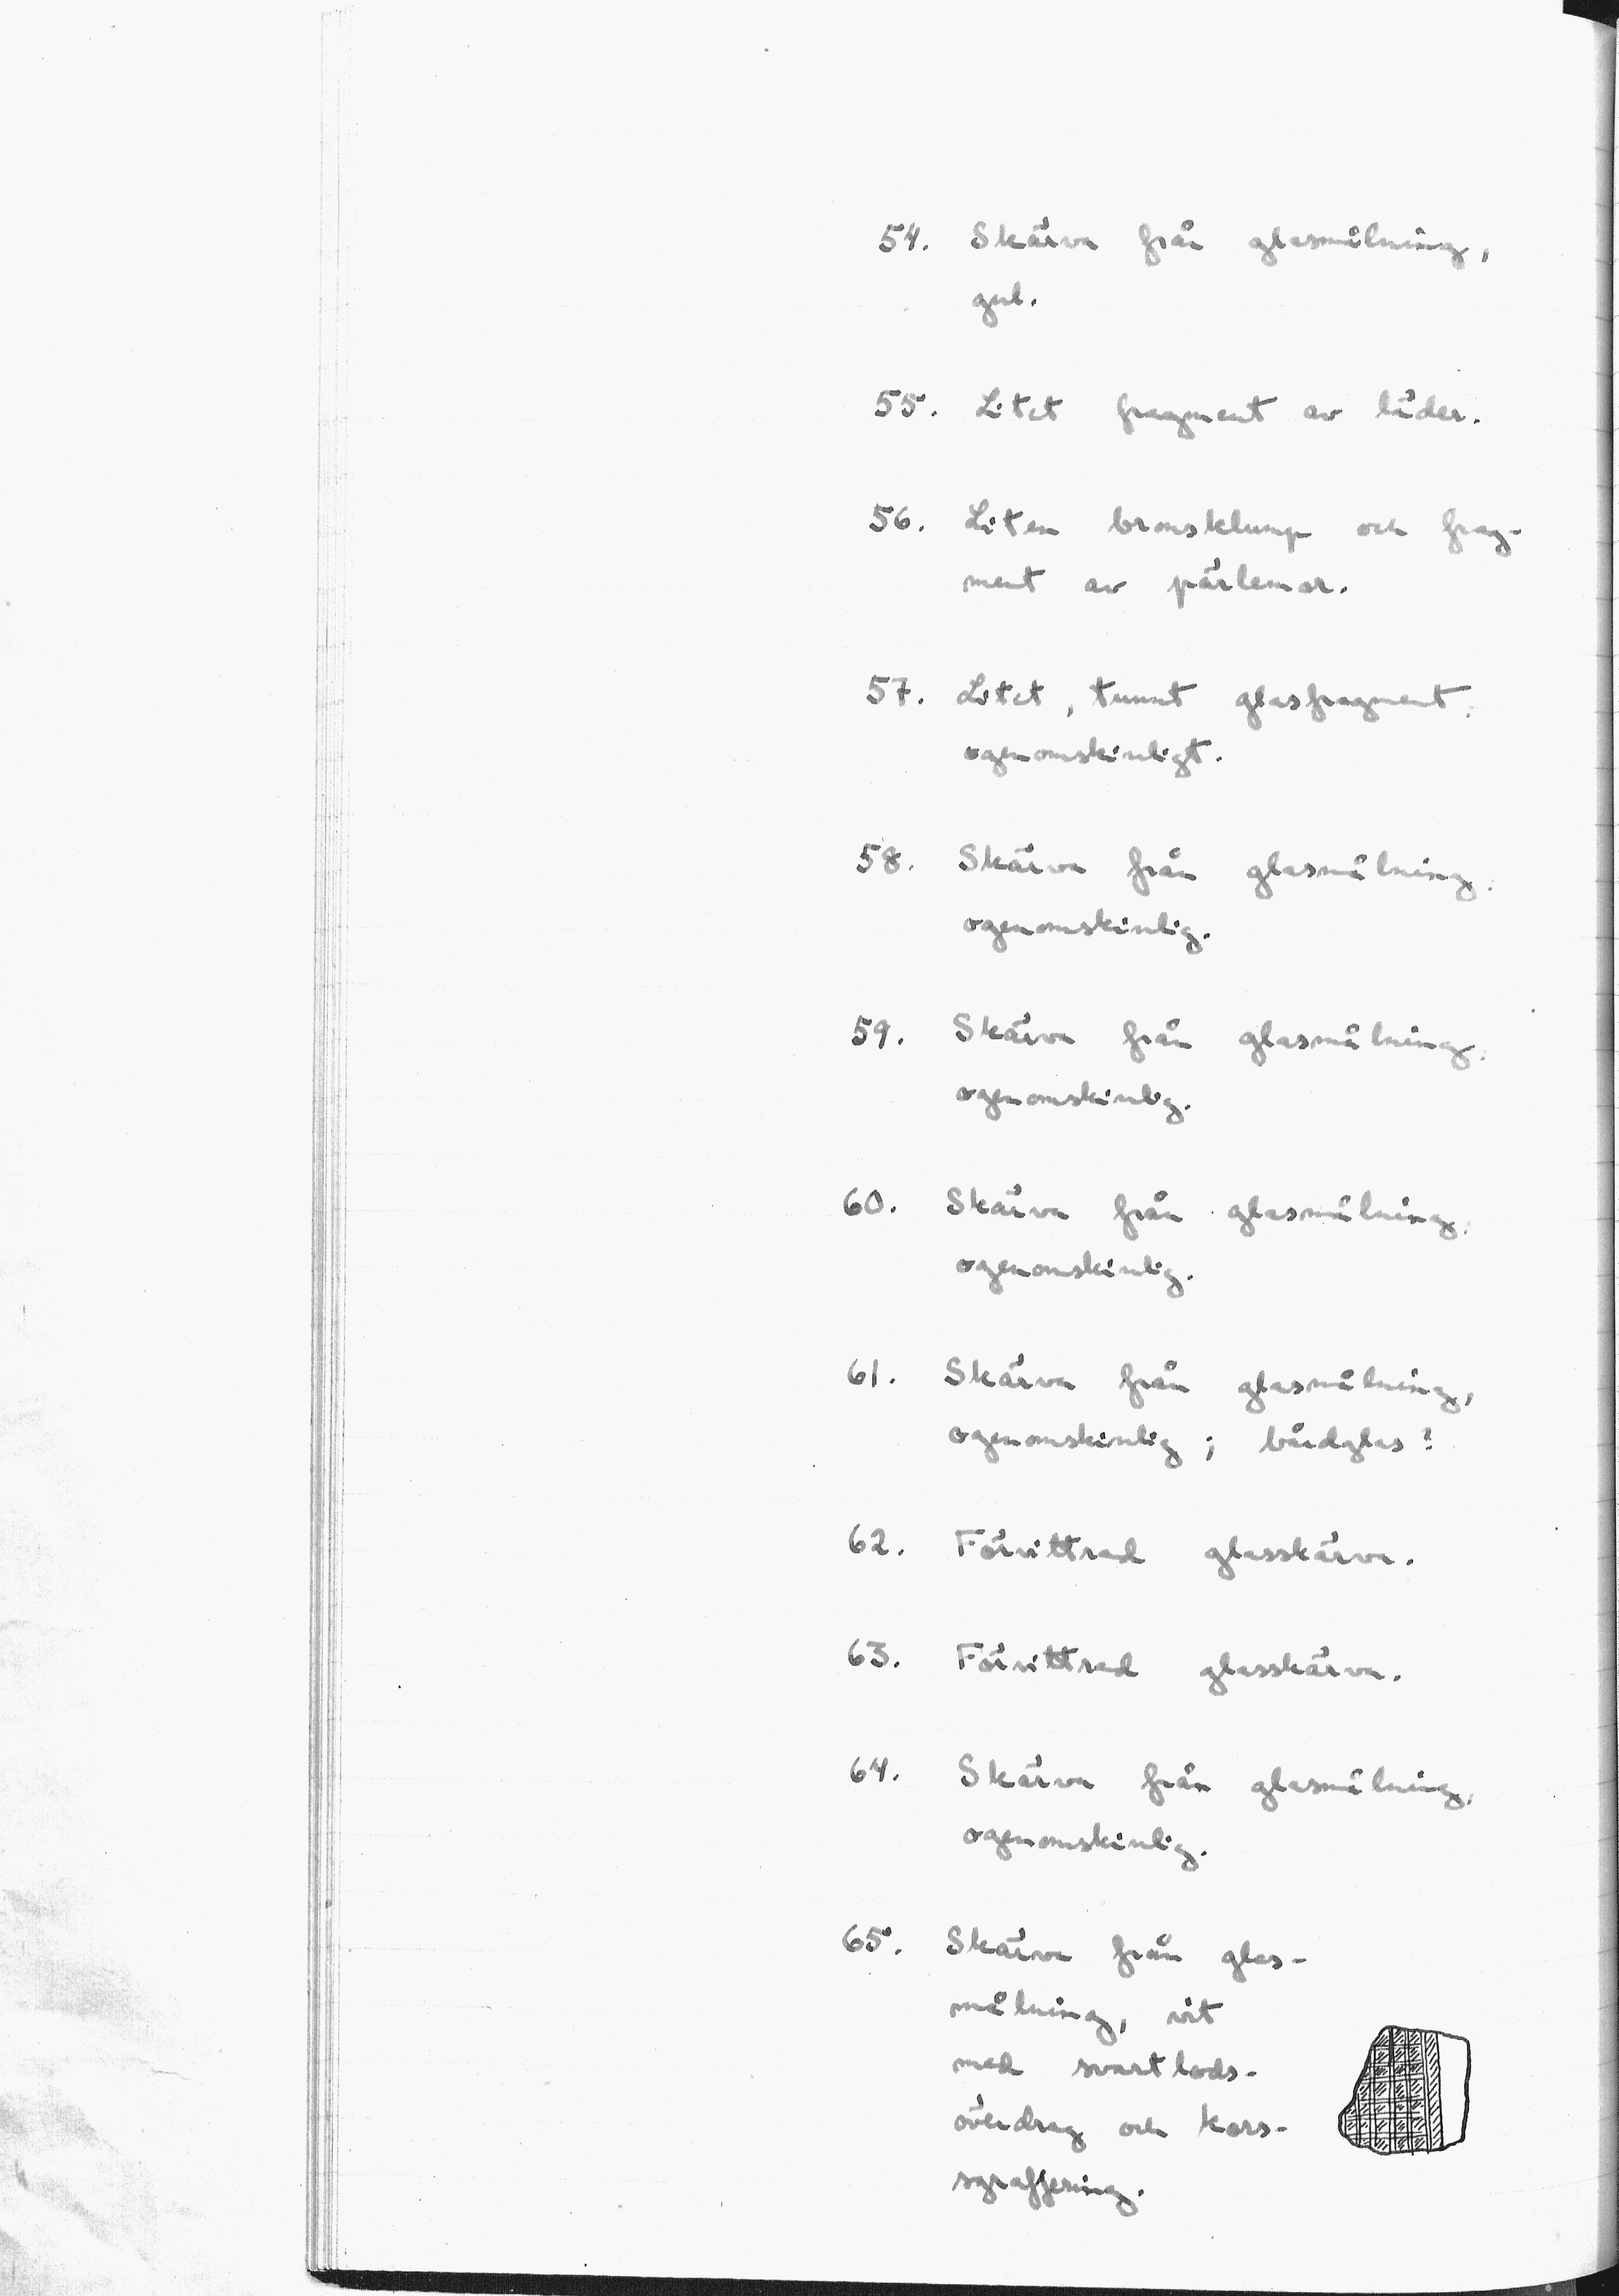 54. Skärva från glasmålning,
gul.
55. Litet fragment av läder.
56. Liten bronsklump och frag-
ment av pärlemor.
57. Litet, tunnt glasfragment,
ogenomskinligt.
58. Skärva från glasmålning,
ogenomskinlig.
59. Skärva från glasmålning,
ogenomskinlig.
60. Skärva från glasmålning,
ogenomskinlig.
61. Skärva från glasmålning,
ogenomskinlig; bårdglas?
62. Förvittrad glasskärva.
63. Förvittrad glasskärva.
64. Skärva från glasmålning,
ogenomskinlig.
65. Skärva från glas-
målning, vit
med svartlods-
överdrag och kors-
sgraffering.